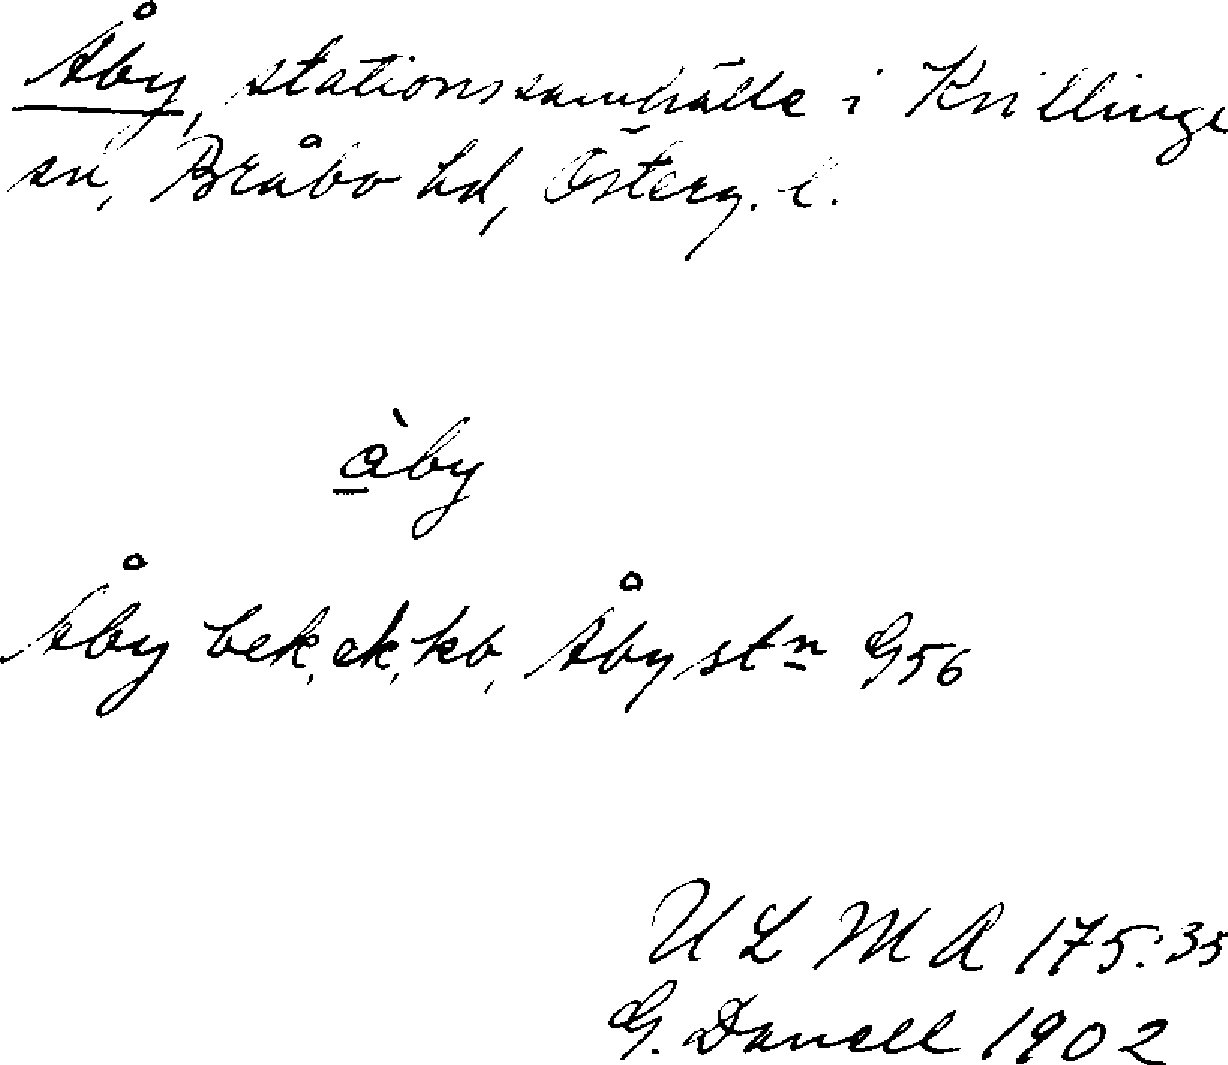 Åby, stationssamhälle i Kvillinge
sn, Bråbo hd, Österg. l.
åby
Åby bek, ek, kb, Åby stn G56
ULMA 175:35
G. Danell 1902